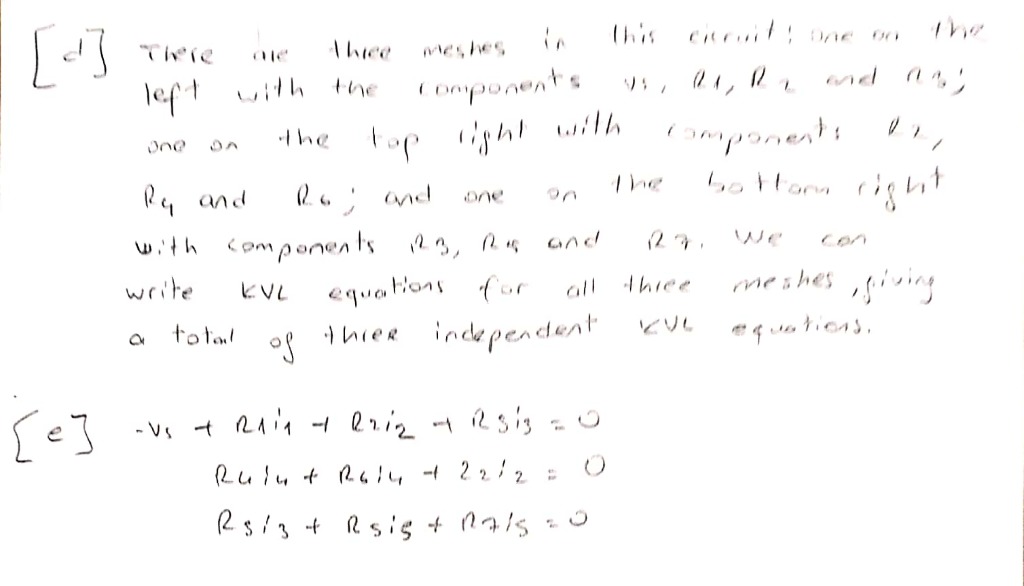 [d] There are three meshes in this circuit: one on the
left with the components vs, R1, R2 and R3;
one on the top right with components R2,
R4 and R6; and one on the bottom right
with components R3, R5 and R7. We can
write KVL equations for all three meshes, giving
a total of three independent KVL equations.
[e] -vs + R1i1 + R2i2 + R3i3 = 0
R4i4 + R6i4 + R2i2 = 0
R3i3 + R5i5 + R7i5 = 0